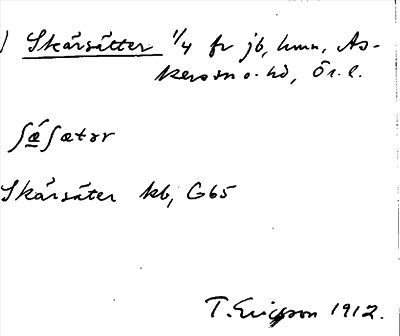 ) Skårsätter 1/4 fr jb, hmn, As-
kers sn o. hd, Ör. l.
ʃǽ̲ʃætər
Skårsäter kb, G65
T. Ericsson 1912.